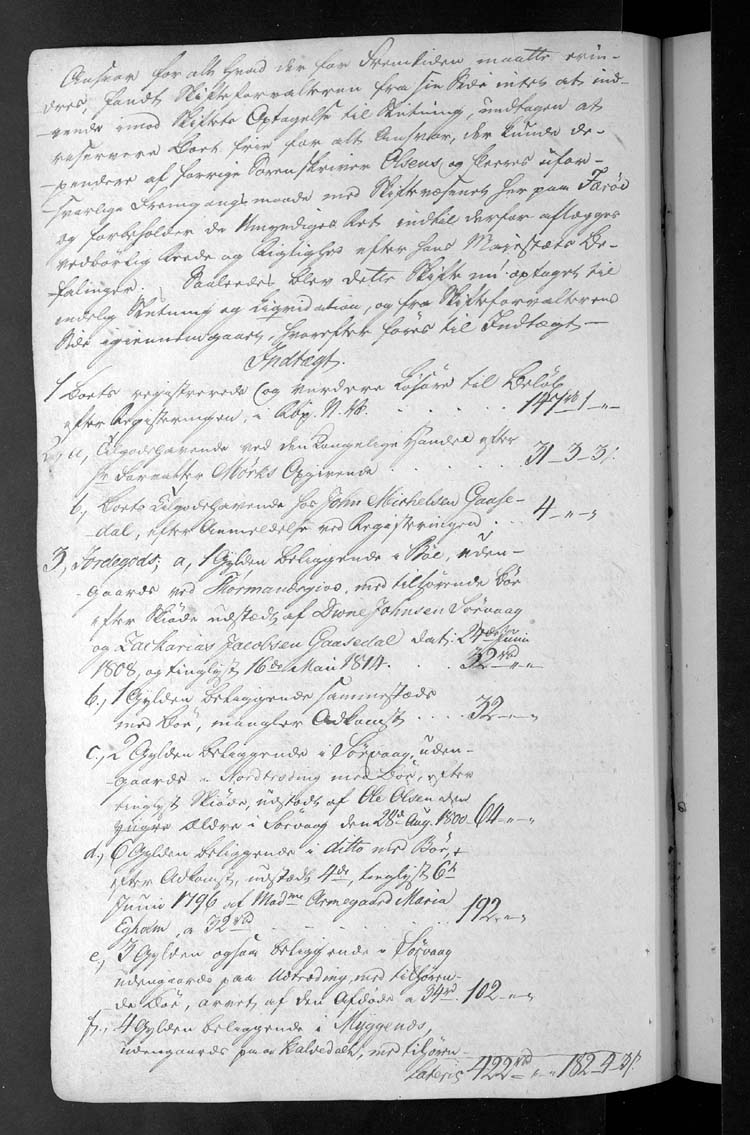 Ansvar for alt hvad der for Fremtiden maatte erin-
dres, fandt Skifteforvalteren fra sin Side intet at ind-
vende imod Skiftets Optagelse til Slutning, undtagen at
reservere Boet frie for alt Ansvar, der kunde de-
pendere af forrige Sorenskriver Olsens og ufor-
svarlige Fremgangsmaade med Skiftevæsenet her paa Færøe
og forbeholder de Umyndiges Ret indtil derfor aflægges
vedbörlig Rede og Rigtighed efter hans Majestæts Be-
falinger. Saaledes blev dette Skifte nu optaget til
endelig Slutning og Liqvidation, og fra Skifteforvalterens
Side igiennemgaaet, hvorefter föres til Indtægt
Indtægt.
1 Boets registrerede og vurdere Lösöre til Belöb
efter Registeringen, i Rbp. N. V. 147 rd 1 - "
2, a, Tilgodehavende ved den Kongelige Handel efter
Hr Mörks Opgivende 31 - 3 - 3 ſ.
b, Boets Tilgodehavende hos John Michelsen Gaase-
dal, efter Anmeldelse ved Registeringen 4 - " - "
3, Jordegods; a, 1 Gylden beliggende i Böe, uden-
gaards ved med tilhörende Böe
efter Skiöde udstædt af Johnsen Sörvaag
og Zacharias Jacobsen Gaasedal dat. 24de Juni
1808, og tinglyst 16de Mai 1814. 32 rd " "
b., 1 Gylden beliggende sammestæds
med Böe, mangler Adkomst 32 - " - "
c., 2 Gylden beliggende i Sörvaag, uden-
gaards i med Böe, efter
tinglyst Skiöde, udstædt af Ole Olsen den
yngre Ældre i Sörvaag den 28de Aug. 1800 64 - " - "
d, 6 Gylden beliggende i ditto med Böe,
efter Adkomst, udstædt 4de, tinglyst 6te
Junii 1796 af Madme Armegaard Maria
Egholm, a 32 rd 192 - " - "
e, 3 Gylden ogsaa beliggende i Sörvaag
udengaards paa med tilhören-
de Böe, arvet af den Afdöde a 34 rd. 102 - " - "
f., 4 Gylden beliggende i Myggenæs,
udengaards paa med tilhören-
Lateris 422 rd " " 182 - 4 - 3 ſ.